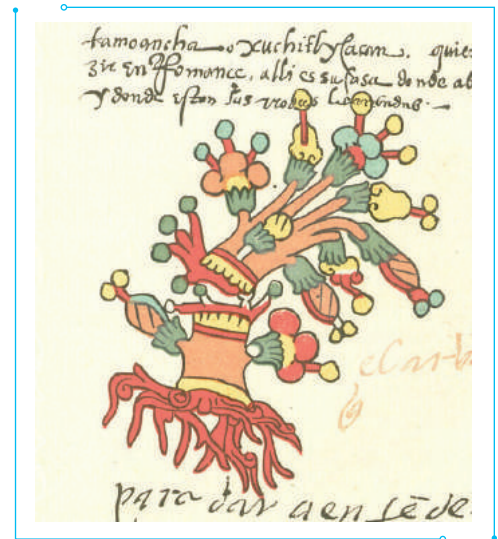 tamoancha o xuchitlycacan. quie
zir en Romance. alli es su casa donde ab
y donde estan sus
para dar a en tẽde